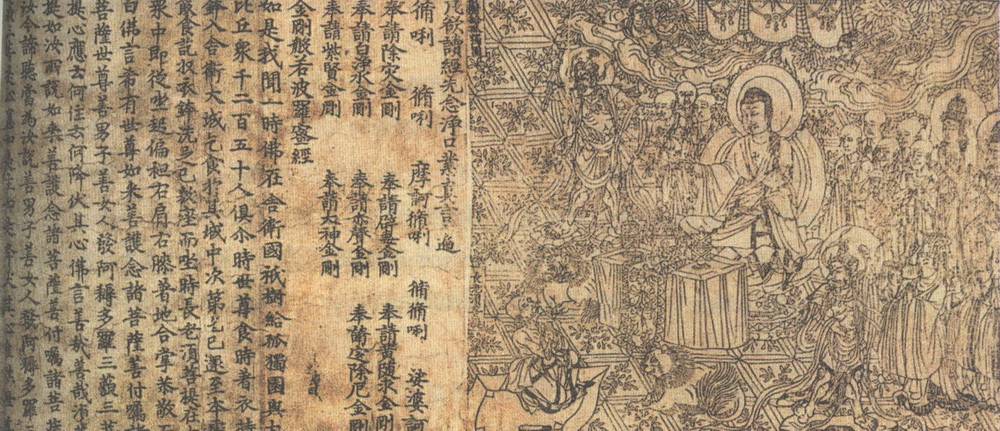 凡欲讀經先念淨口業真言遍
脩唎 脩唎 摩訶脩唎 脩脩唎 娑婆訶
奉請除灾金剛 奉請辟毒金剛 奉請黃隨求金剛
奉請白淨水金剛 奉請赤聲金剛 奉請定除厄金剛
奉請紫賢金剛 奉請大神金剛
金剛般若波羅蜜經
如是我聞一時佛在舍衛國祇樹給孤獨園與大
比丘眾千二百五十人俱尒時世尊食時著衣持
鉢入舍衛大城乞食於其城中次第乞已還至本
飯食訖收衣鉢洗足已敷座而坐時長老須菩提在
眾中即從坐起偏袒右肩右膝著地合掌恭敬而
白佛言希有世尊如來善護念諸菩薩善付囑
菩薩世尊善男子善女人發阿耨多羅三藐三菩
提心應云何住云何降伏其心佛言善哉善哉須
提如汝所說如來善護念諸菩薩善付囑諸菩
汝今諦聽當為汝說善男子善女人發阿耨多羅